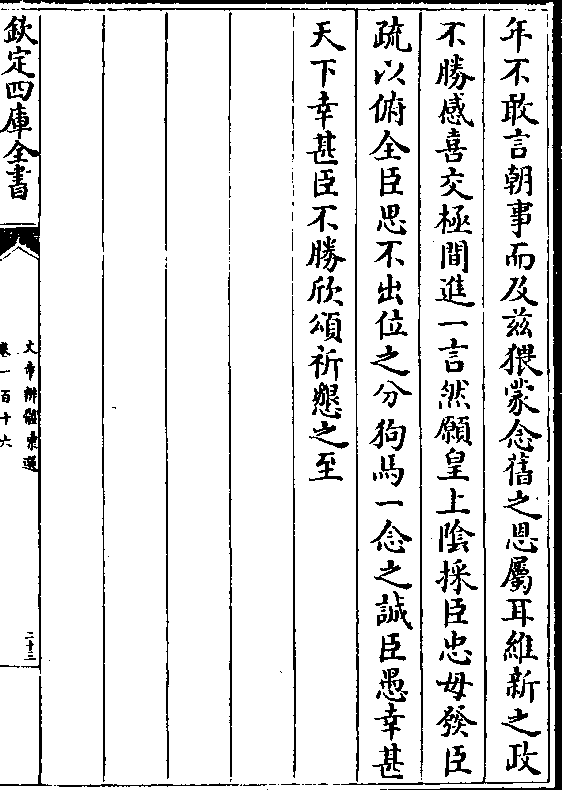 年不敢言朝事而及兹猥蒙念舊之恩屬耳維新之政
不勝感喜交極間進一言然願皇上陰採臣忠毋發臣
疏以俯全臣思不出位之分狗馬一念之誠臣愚幸甚
天下幸甚臣不勝欣頌祈懇之至
欽定四庫全書
文章辨體彙選
卷一百十六
二十三